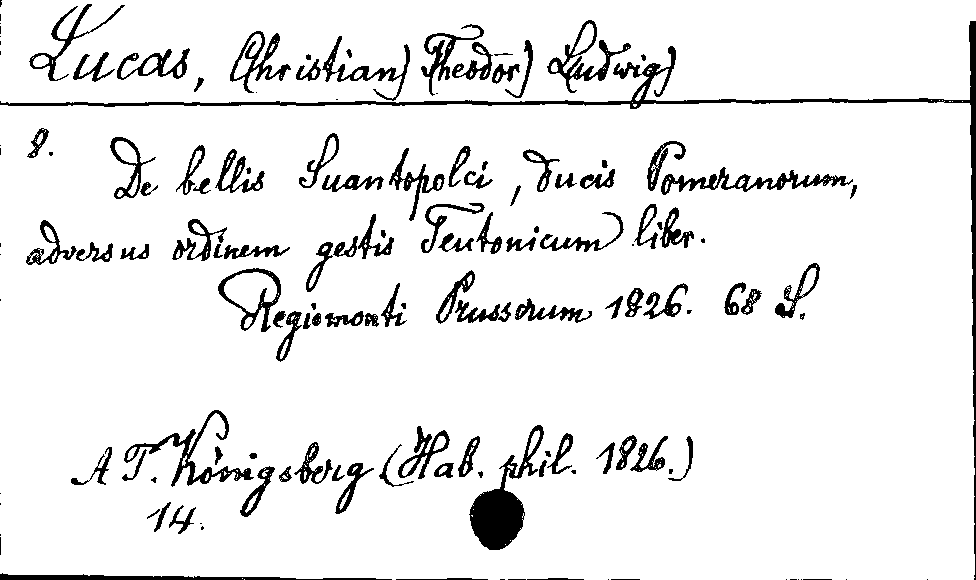 Lucas, Christian) Theodor) Ludwig)
8. De bellis Suantopolci, ducis Pomeranorum,
adversus ordinem gestis Teutonicum liber.
Regiomonti Prussorum 1826. 68 S.
A T. Königsberg (Hab. phil. 1826.)
14.